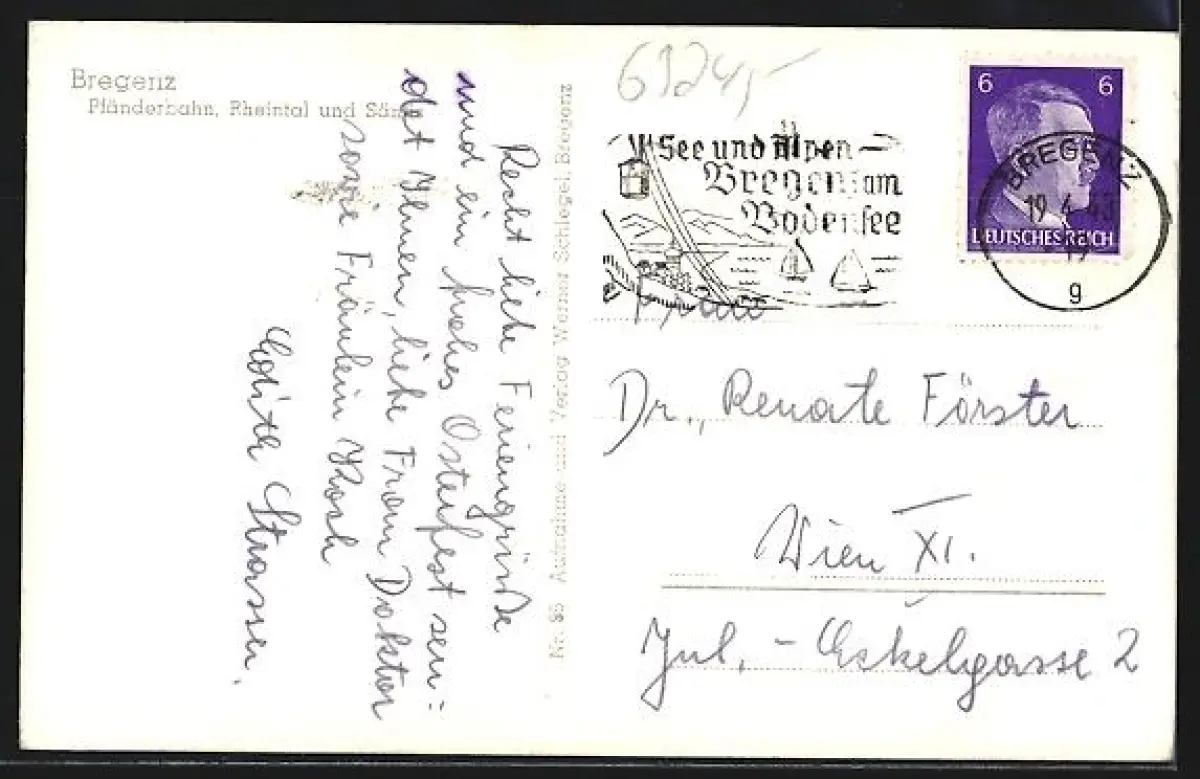 Bregenz
Pfänderbahn, Rheintal und
Recht liebe Feriengrüße
und ein frohes Osterfest sen=
det Ihnen, liebe Frau Doktor
sowie Fräulein Koch
Edith Strasser.
Nr. 85 Aufnahme und Verlag Werner Schlegel, Bregenz
6124,-
See und Alpen
Bregenz am
Bodensee
6 6
DEUTSCHES REICH
BREGENZ
19.4.43
g
Frau
Dr. Renate Förster
Wien XI.
Jul.-Eskelgasse 2